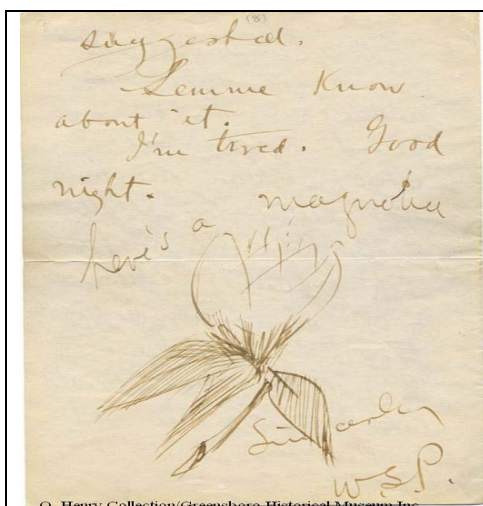 (8)
suggested.
Lemme Know
about it.
I'm tired. Good
night.
here's a magnolia
Sincerely
W.S.P.
O. Henry Collection/Greensboro Historical Museum Inc